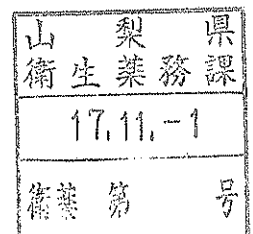 山梨県
衛生薬務課
17.11.-1
衛薬第 号